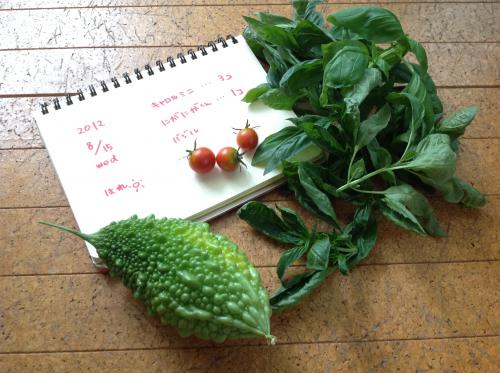 2012
8/15
wed
はれ
キャロルミニ … 3コ
にがにがくん … 1コ
バジル